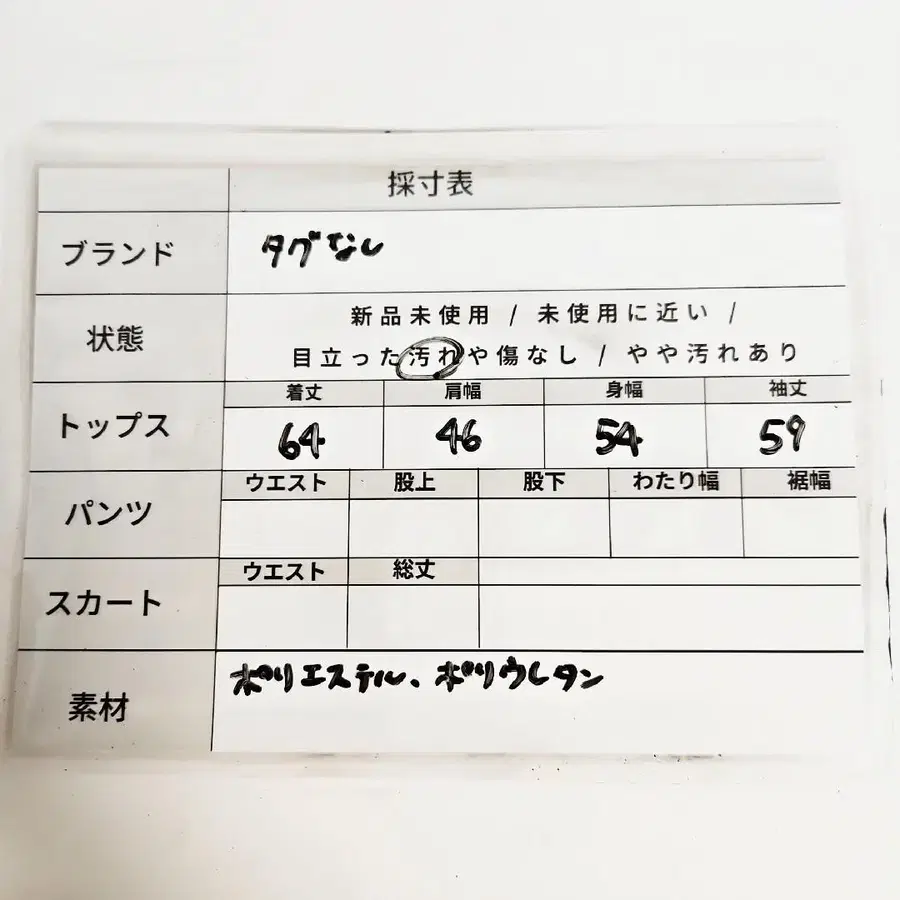 採寸表
ブランド タグなし
状態 新品未使用 / 未使用に近い /
目立った汚れや傷なし / やや汚れあり
トップス 着丈 肩幅 身幅 袖丈
64 46 54 59
パンツ ウエスト 股上 股下 わたり幅 裾幅
スカート ウエスト 総丈
素材 ポリエステル、ポリウレタン